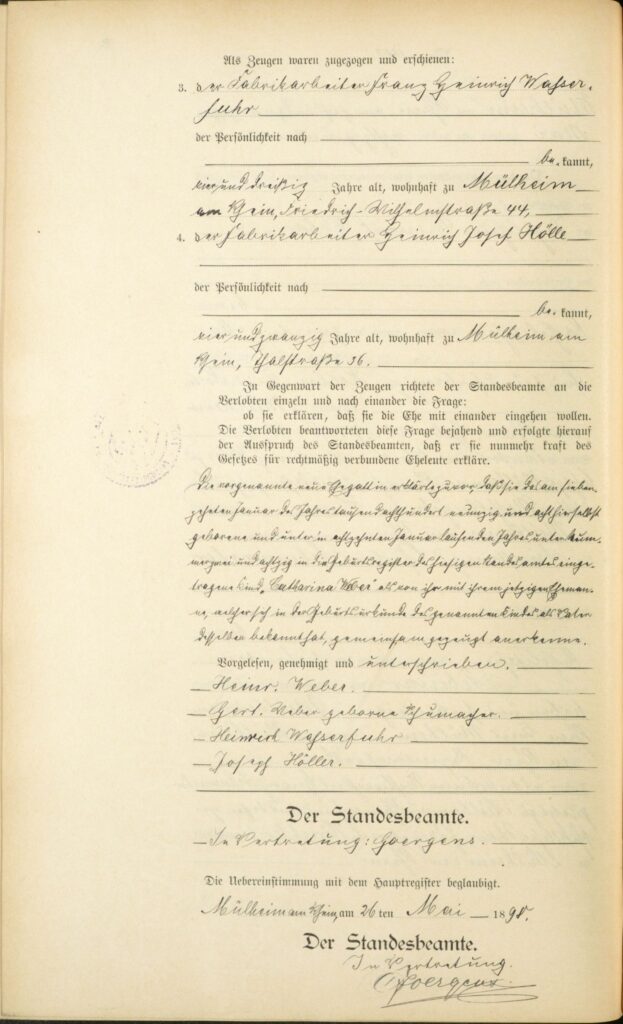 Als Zeugen waren zugezogen und erschienen:
3. der Fabrikarbeiter Franz Heinrich Wasser-
fuhr
der Persönlichkeit nach
be kannt,
vierunddreißig Jahre alt, wohnhaft zu Mülheim
am Rhein, Friedrich-Wilhelmstraße 44,
4. der Fabrikarbeiter Heinrich Josef Hölle
der Persönlichkeit nach
be kannt,
vierundzwanzig Jahre alt, wohnhaft zu Mülheim am
Rhein, Thalstraße 36.
In Gegenwart der Zeugen richtete der Standesbeamte an die
Verlobten einzeln und nach einander die Frage:
ob sie erklären, daß sie die Ehe mit einander eingehen wollen.
Die Verlobten beantworteten diese Frage bejahend und erfolgte hierauf
der Ausspruch des Standesbeamten, daß er sie nunmehr kraft des
Gesetzes für rechtmäßig verbundene Eheleute erkläre.
Die vorgenannte neue Ehegattin erklärte zuvor, daß sie das am sieben-
zehnten Januar des Jahres tausend achthundert neunzig und acht hierselbst
geborene und unterm achtzehnten Januar laufenden Jahres unter Num-
mer zwei und achtzig in die Geburtsregister des hiesigen Standesamtes einge-
tragene Kind „Catharina Weber" als von ihr mit ihrem jetzigen Eheman-
ne, welcher sich in der Geburtsurkunde des genannten Kindes als Vater
desselben bekannt hat, gemeinsam gezeugt anerkenne.
Vorgelesen, genehmigt und unterschrieben.
Heinr. Weber.
Gert. Weber geborne Schumacher.
Heinrich Wasserfuhr
Joseph Höller.
Der Standesbeamte.
In Vertretung: Goergens.
Die Uebereinstimmung mit dem Hauptregister beglaubigt.
Mülheim am Rhein, am 26 ten Mai 1898.
Der Standesbeamte.
In Vertretung.
Goergens